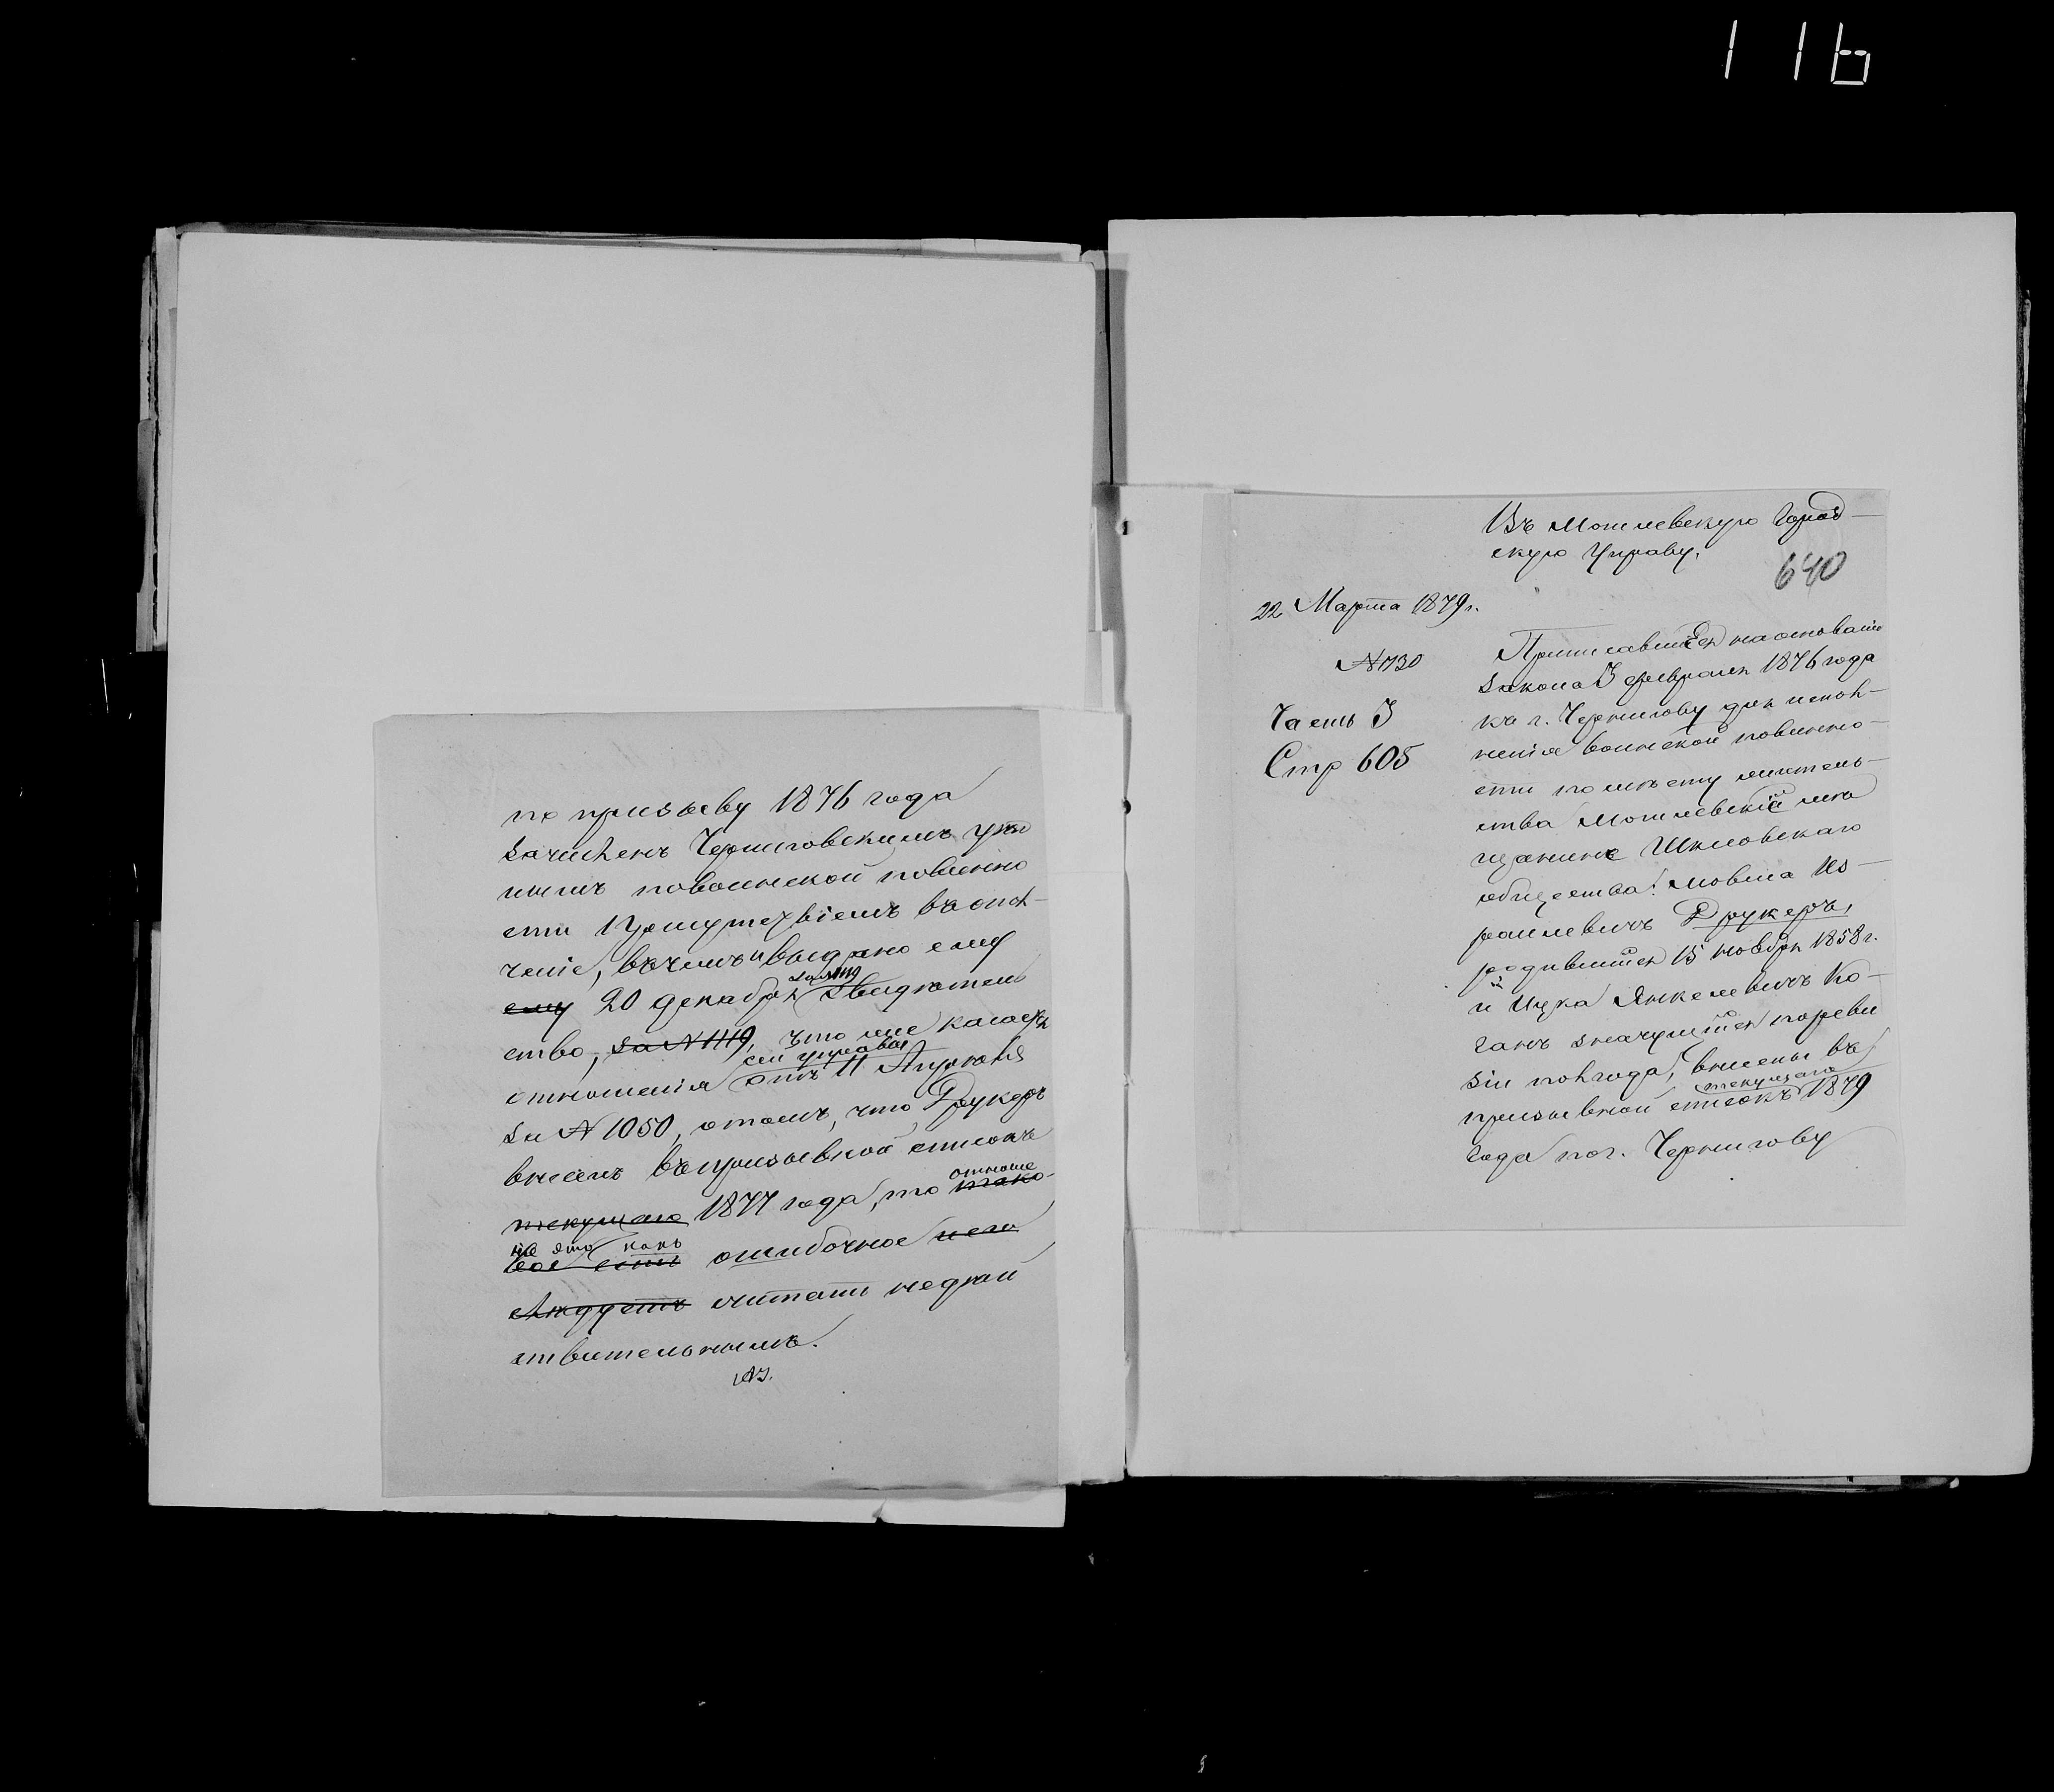 116
по призыву 1876 года
зачисленъ Черниговскимъ уѣзд
нымъ по воинской повинно
сти Присутствіемъ въ опол-
ченіе, въ чемъ и выдано ему
ему 20 декабря за №1119 свидѣтель
ство, за №1119, что же касается
отношенія сей управы отъ 11 Апрѣля
за №1050, о томъ, что Друкеръ
внесенъ въ призывной списокъ
текущаго 1877 года, то отноше тако-
ніе это какъ
вое есть ошибочное
слѣдуетъ считать недѣй
ствительнымъ.
Въ Могилевскую Город-
скую Управу.
640
22 Марта 1879 г.
№730
Часть I
Стр 605
Приписавшійся на основаніи
закона 3 февраля 1876 года
къ г. Чернигову для испол-
ненія воинской повинно-
сти по мѣсту житель-
ства Могилевскій мѣ
щанинъ Шкловскаго
общества: Мовша Из-
раилевичъ Друкеръ,
родившійся 15 ноября 1858 г.
и Ицка Янкелевичъ Ко-
ганъ значущійся по реви
зіи полгода, внесены въ
призывной списокъ текущаго 1879
года по г. Чернигову